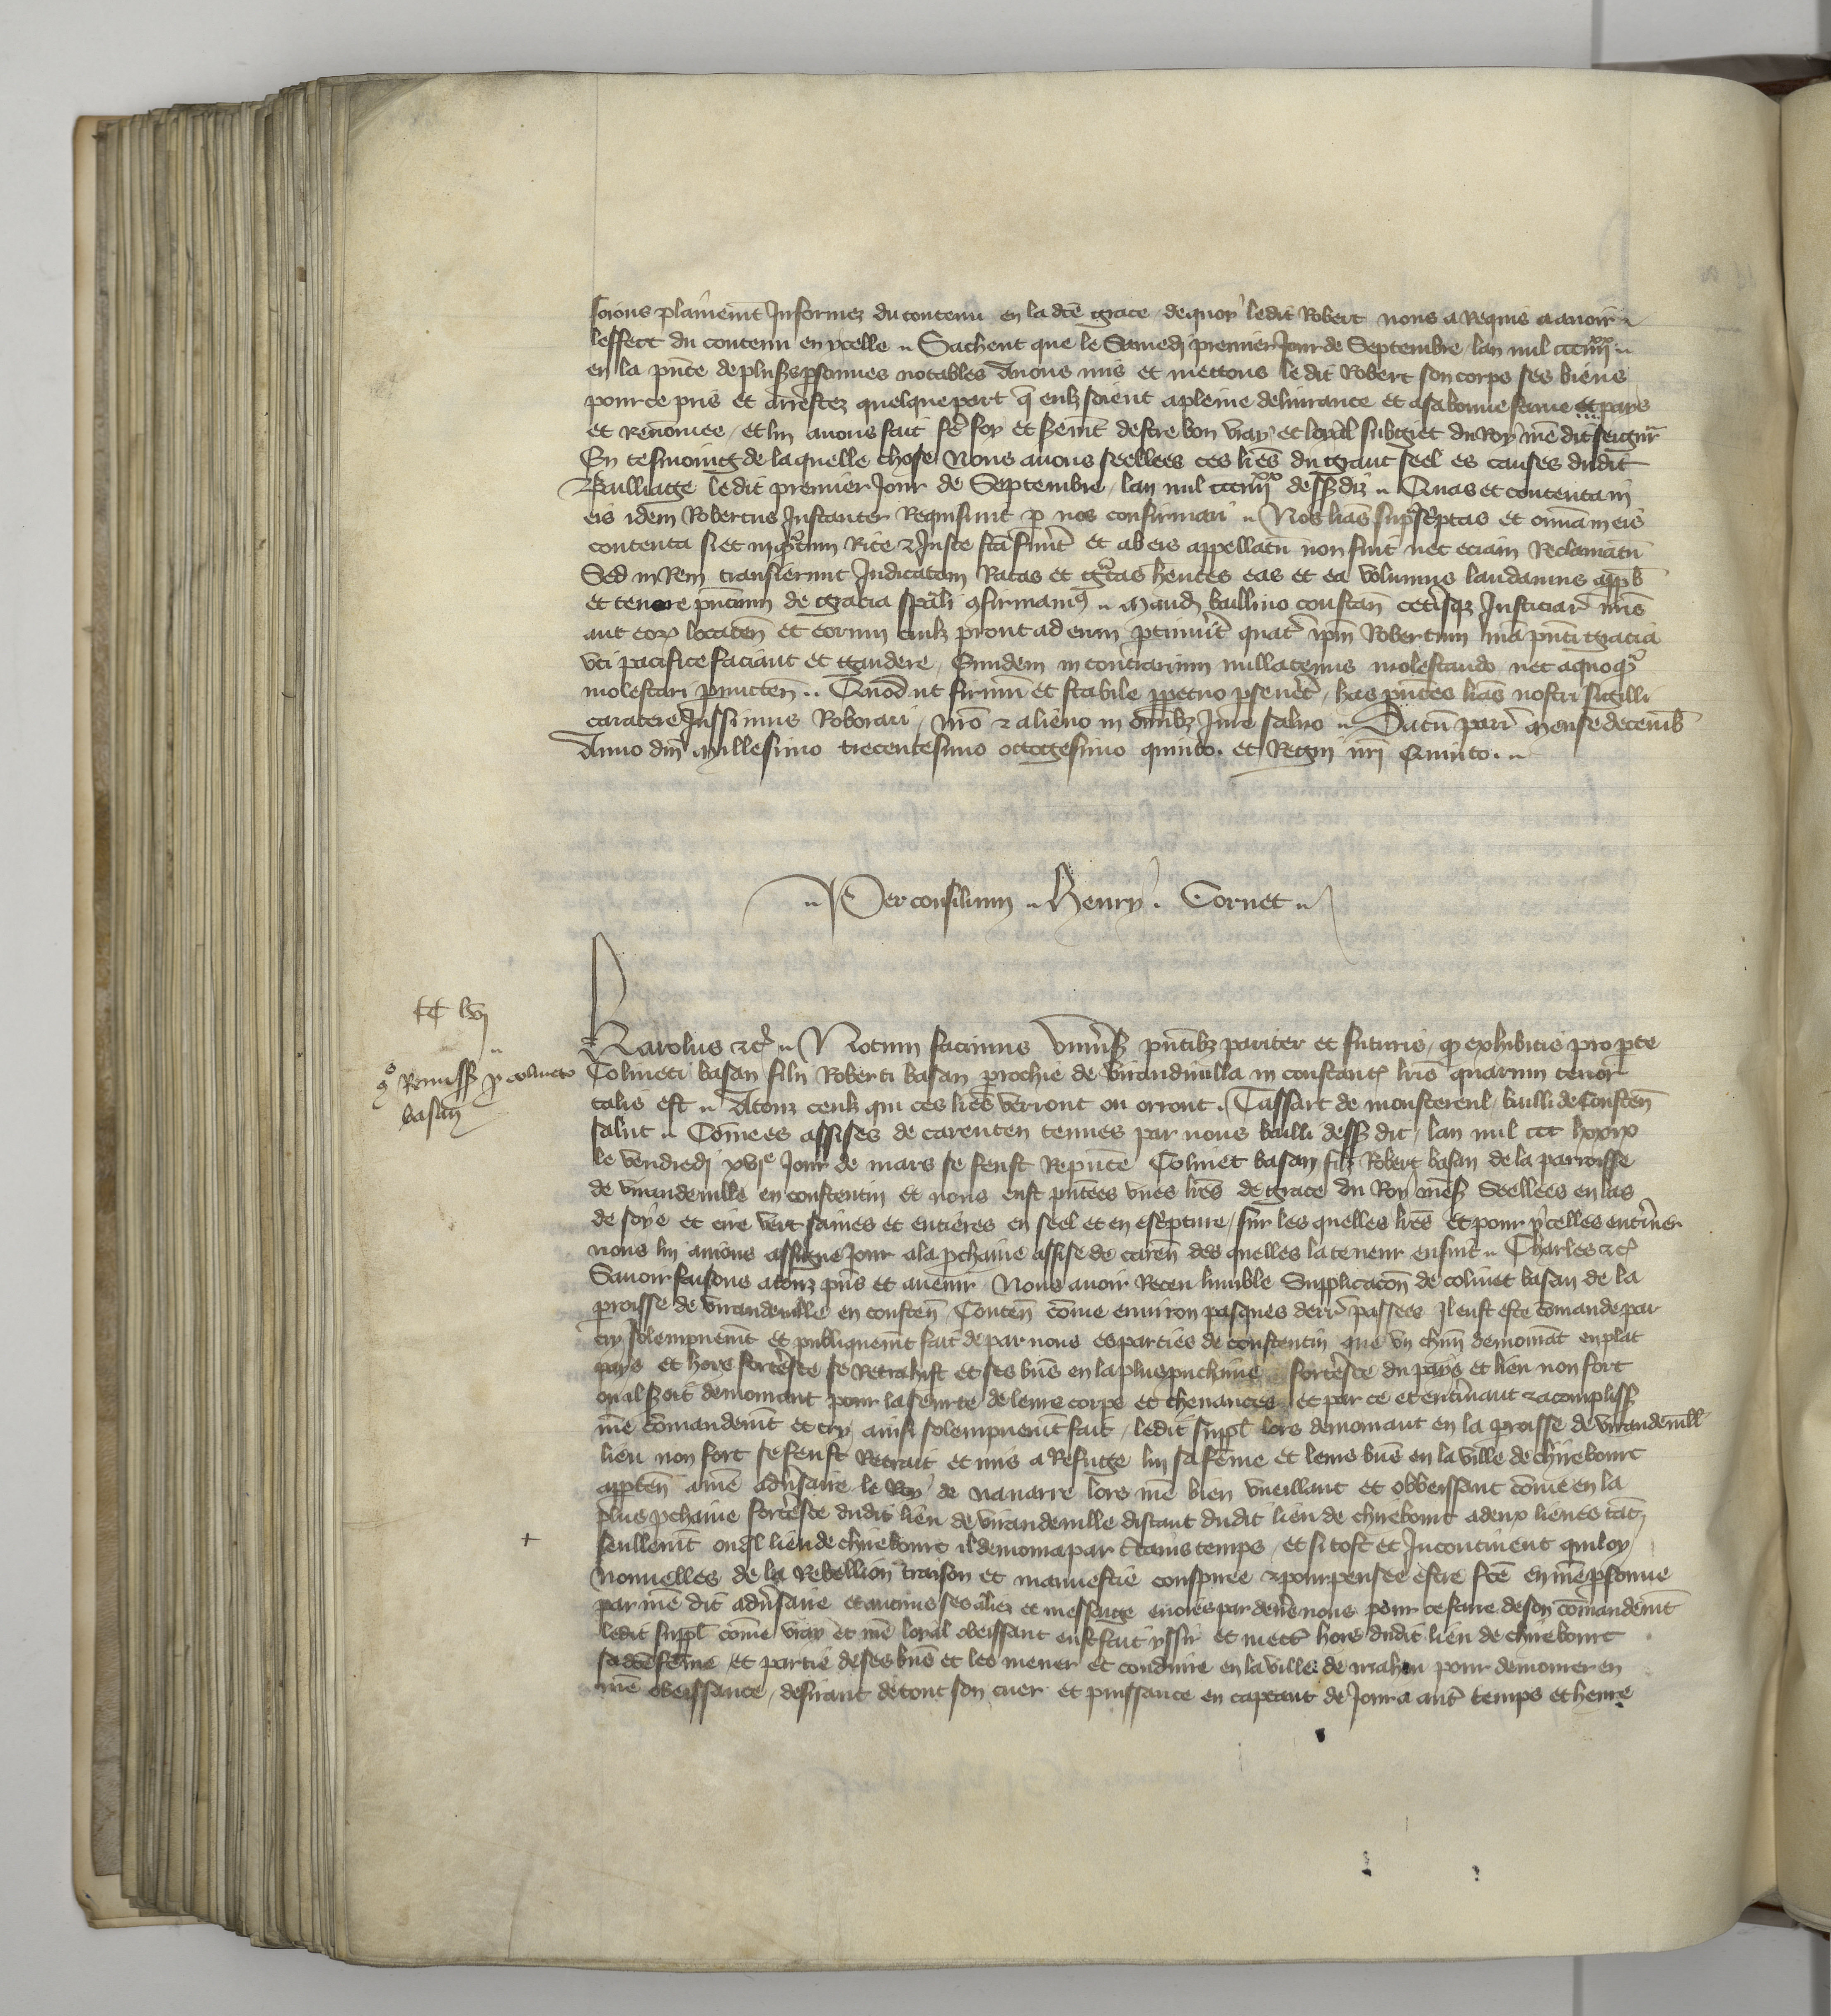 soions plainemt Informez du contenu en la dce grace de quoy ledit Robert nous a Requis a avoir
leffect du contenu en ycelle Sachent que le Samedi premier Jour de Septembre lan mil ccciiiixx
en la pnce de plusrs psonnes notables Avons mis et mettons le dit Robert son corps ses biens
pour ce pris et arrestez quelque part q eulz soient a pleine delivrance et a sa bonne fame et pays
et Renomee et luy avons fait fe foy et sermt destre bon vray et loyal subgiet du Roy nre dit seignr
En tesmoing de laquelle chose Nous avons seellees ces lres du grant seel es causes dudit
Bailliage le dit premier Jour de Septembre lan mil ccciiiixx dessdiz Quas et contenta in
eis idem Robertus Instanter Requisivit p nos confirmari Nos lras supsciptas et omia in eis
contenta si et inqtum Rite et Juste fca fuit et ab eis appellatu non fuit nec eciam Reclamatu
Sed in Rem transierunt Judicatam Ratas et gtas hentes eas et ea volumus laudamus appb
et tenore pncium de gracia spali confirmamus Mand baillivo constan cetisqz Justiciar nris
aut eorum locaten et eorum cuilz prout ad eum ptinuit quat ipm Robertum nra pnti gracia
uti pacifice faciant et gaudere Eundem in contrarium nullatenus molestando nec a quoq
molestari pmitten Quod ut firmu et stabile ppetuo psevet has pntes lras nostri sigilli
caractere Jussimus Roborari nro et alieno in omibz Jure salvo Datu paris mense decemb
Anno dni millesimo trecentesimo octogesimo quinto. et Regni nri Quinto.
Per consilium Henry. Cornet
CC lvj
Karolus etc Notum facimus univsis pntibz pariter et futuris q exhibitis pro pte
co Remiss p colineto
basan
Colineti basan filii Roberti basan prochie de Virandavilla in constant lris quarum tenor
talis est A touz ceulz qui ces lres verront ou orront. Tassart de monstereul bailli de Costen
salut Come es assises de carenten tenues par nous bailli dess dit lan mil ccc lxxix
le vendredi xvie Jour de mars se feust Repnte Colinet basan filz Robert basan de la parroisse
de virandeville en constentin et nous eust pntees unes lres de grace du Roy nre s Seellees en las
de soye et cire vert saines et entieres en seel et en escripture sur les quelles lres et pour ycelles entiner
nous lui avions assigne Jour a la pchaine assise de caren des quelles la teneur ensuit Charles etc
Savoir faisons a touz pns et avenir Nous avoir Receu humble Supplicacon de colinet basan de la
proisse de virandeville en consten Conten come environ pasques derr passees Il eust este comande par
cry solempnemt et publiquemt fait de par nous es parties de constentin que un chun demorat en plat
pays et hors fortesce se Retrahist et ses bns en la plus puchaine fortesce du pays et lieu non fort
ou il soit demorant pour la seurte de leurs corps et chevances et par ce et entinant et acompliss
nre comandemt et cry ainsi solempnemt fait ledit suppl lors demorant en la proisse de virandevill
lieu non fort se feust Retrait et mis a Refuge lui sa feme et leurs bns en la ville de chierbourc
appten a nre advsaire le Roy de navarre lors nre bien vueillant et obbeissant come en la
plus pchaine fortesce dudit lieu de virandeville distant dudit lieu de chierbourc a deux lieues tat
seullemt ou ql lieu de chierbourc il demora par ctains temps et si tost et Incontinent quil oy
nouvelles de la Rebellion traison et mauvestie conspiree et pourpensee estre fce en nre psonne
par nre dit advsaire et aucuns ses aliez et messatge envoies par devs nous pour ce faire de son comandemt
ledit suppl come vray et nre loyal obeissant eust fait yssir et mectre hors dudit lieu de chierbourc
sa dce feme et partie de ses bns et les mener et conduire en la ville de pour demorer en
nre obeissance desirant de tout son cuer et puissance en captant de Jour a autre temps et heure